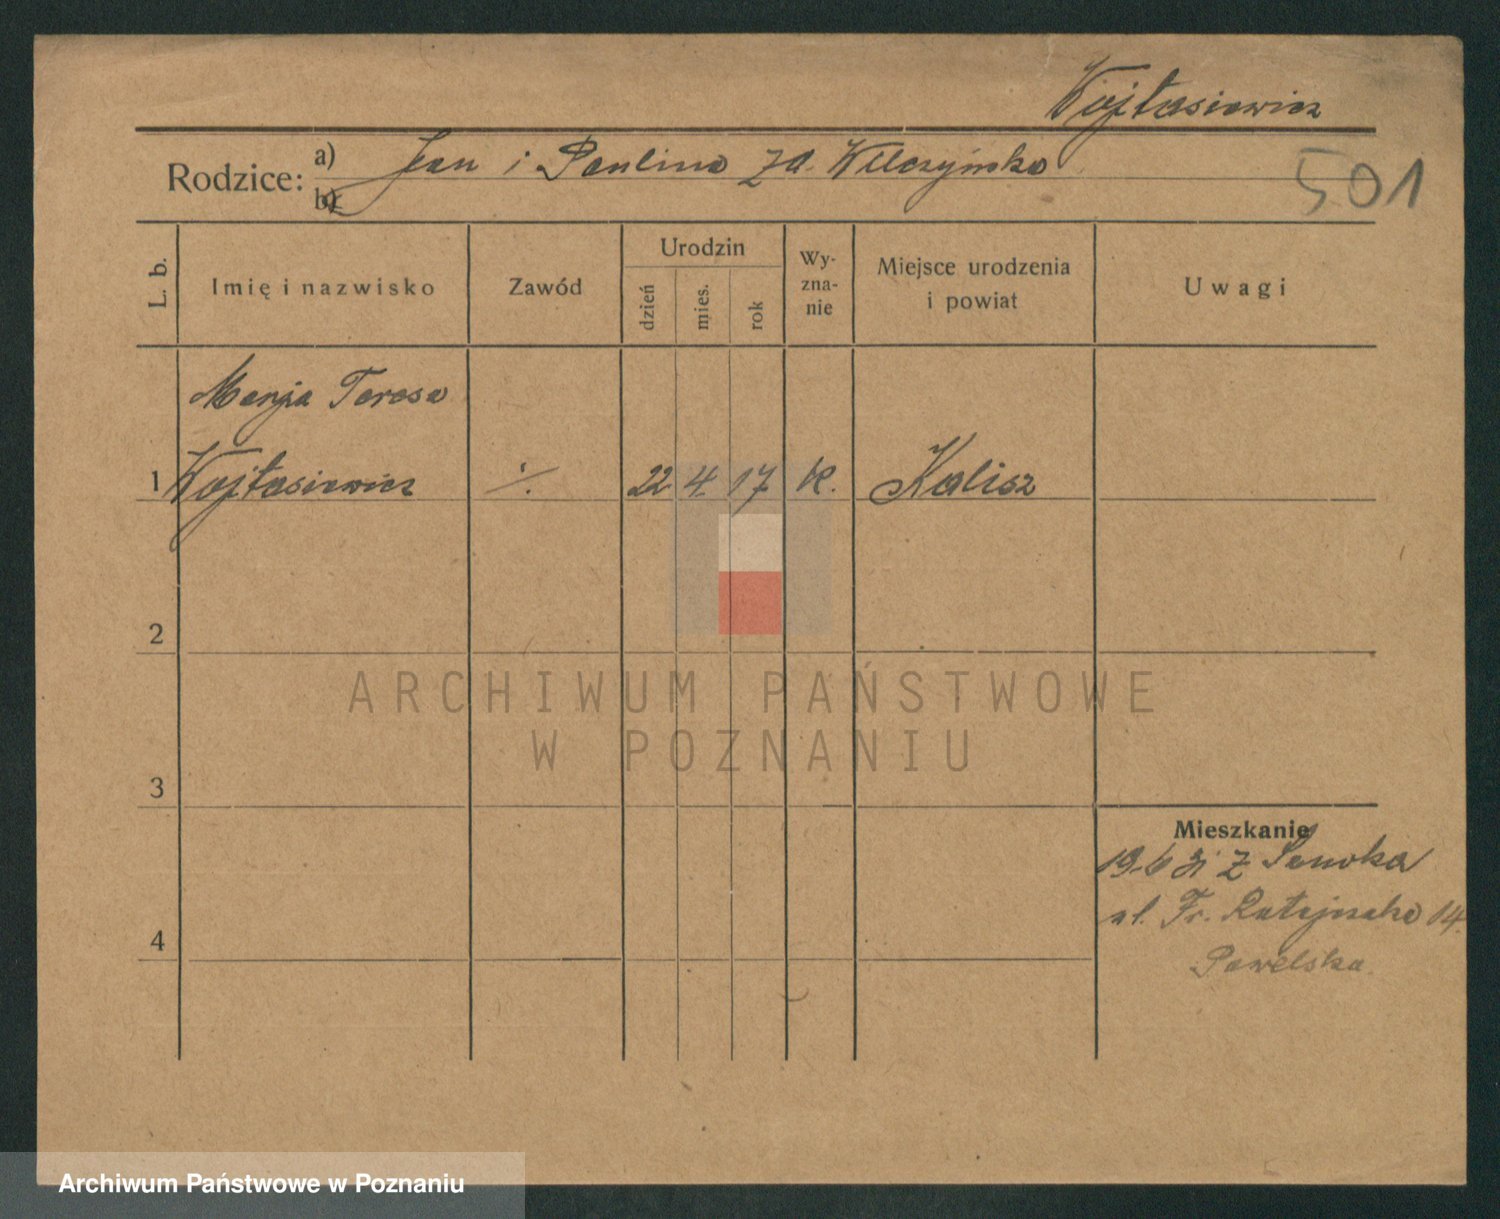 Wojtasiewicz
Rodzice: a) Jan i Paulina zd. Wilczyńska
b)
501
L. b.
Imię i nazwisko
Zawód
Urodzin
dzień
mies.
rok
Wy-
zna-
nie
Miejsce urodzenia
i powiat
Uwagi
Marja Teresa
1 Wojtasiewicz ·/. 22 4. 17 k. Kalisz
2
3
4
Mieszkanie
z Sanoka
ul. Fr. Ratajczaka 14.
Pawelska
ARCHIWUM PAŃSTWOWE
W POZNANIU
Archiwum Państwowe w Poznaniu